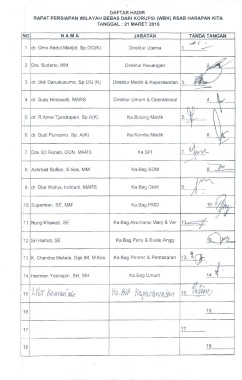 DAFTAR HADIR
RAPAT PERSIAPAN WILAYAH BEBAS DARI KORUPSI (WBK) RSAB HARAPAN KITA
TANGGAL : 21 MARET 2016
NO NAMA JABATAN TANDA TANGAN
1 dr. Gimi Abdul Madjid, Sp.OG(K) Direktur Utama 1.
2 Dra. Sudarto, MM Direktur Keuangan 2.
3 dr. Didi Danukusumo, Sp.OG (K) Direktur Medik & Keperawatan 3.
4 dr. Susy Himawati, MARS Direktur Umum & Operasional 4.
5 dr. R Anna Tjandrajani, Sp.A(K) Ka.Bidang Medik 5.
6 dr. Budi Purnomo, Sp. A(K) Ka Komite Medik 6.
7 Dra. Eti Rohati, DCN, MARS Ka SPI 7.
8 Achmad Sofian, S.Sos, MM Ka.Bag SDM 8.
9 dr. Dwi Wahyu MARS Ka.Bag Diklit 9.
10 Suparman, SE, MM Ka.Bag PMD 10.
11 Nung Khawati, SE Ka.Bag Akuntansi Manj & Ver 11.
12 Sri Hartuti, SE Ka.Bag Peny & Evalu Angg 12.
13 K. Chandra Mekara, Dipl.IM, M.Kes Ka.Bag Promosi & Pemasaran 13.
14 Herman Yosrapin, SH, MH Ka.Bag Umum 14.
15 15.
16 16.
17 17.
18 18.